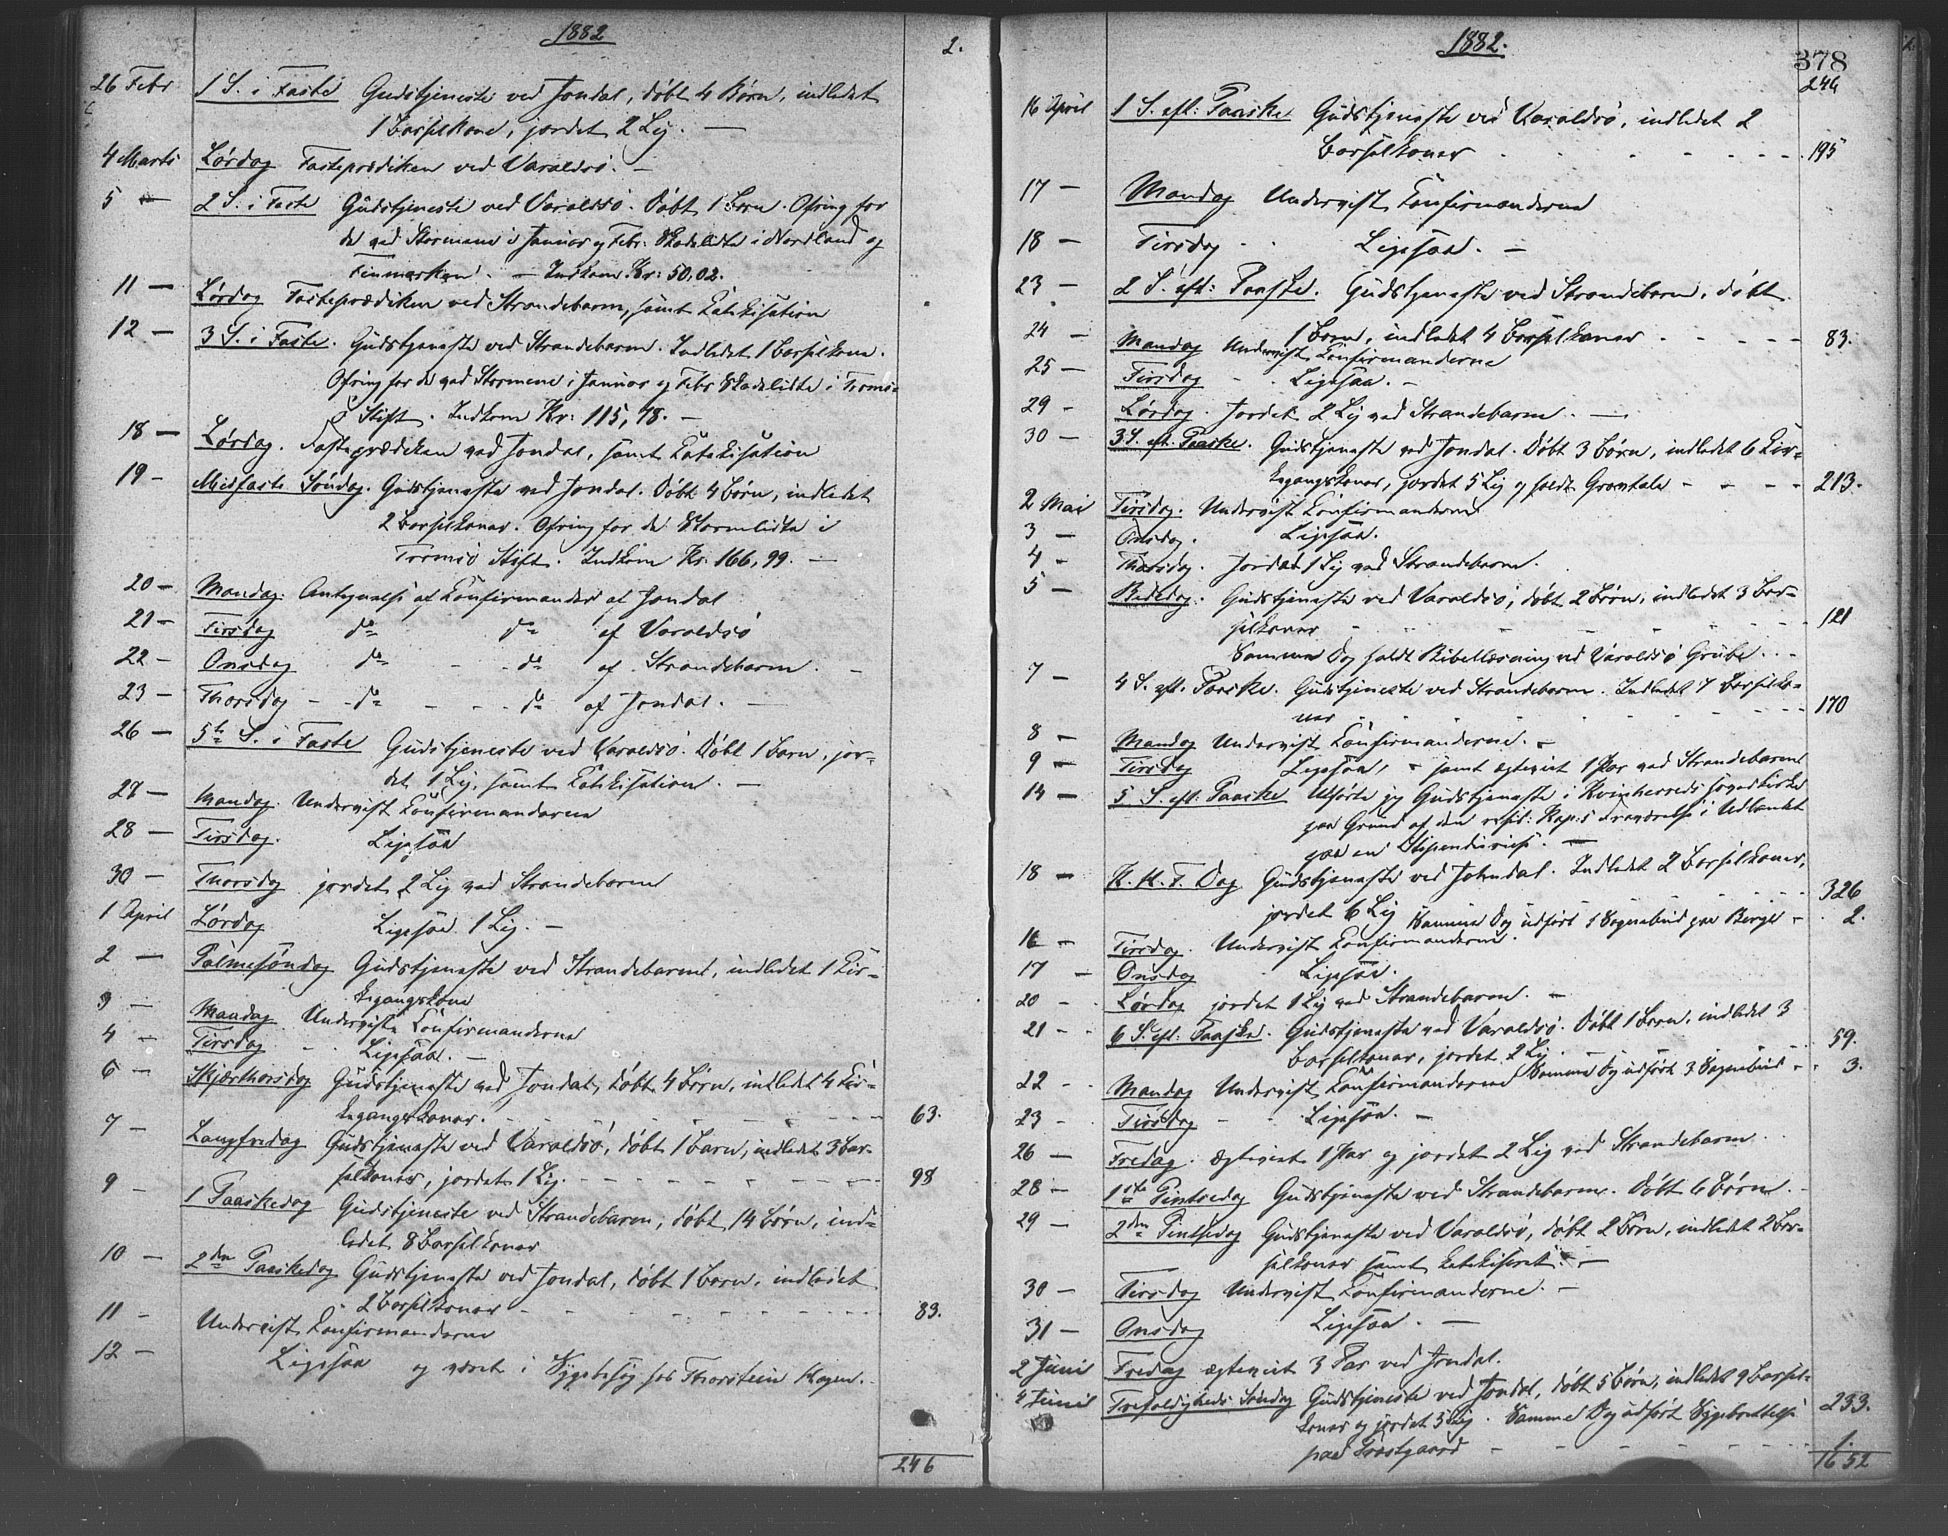 1882
2.
26 Febr 1 S. i Faste Gudstjeneste ved Jondal, døbt 4 Børn, indledet
1 Barselkone, jordet 2 Lig. —
4 Marts Lørdag Fasteprædiken ved Varaldsö. —
5 — 2 S. i Faste Gudstjeneste ved Varaldsö. Døbt 1 Barn. Ofring for
de ved Stormene i Januar og Febr: Skadelidte i Nordland og
Finmarken. — Indkom Kr: 50,02.
11 — Lørdag Fasteprædiken ved Strandebarm, samt Katekisation
12 — 3 S. i Faste. Gudstjeneste ved Strandebarm. Indledet 1 Barselkone.
Ofring for de ved Stormene i Januar og Febr Skadelidte i Troms-
ö Stift. Indkom Kr: 115,78. —
18 — Lørdag. Fasteprædiken ved Jondal, samt Katekisation
19 — Midfaste Söndag. Gudstjeneste ved Jondal. Døbt 4 Børn, indledet
2 Barselkoner. Ofring for de Stormlidte i
Tromsö Stift. Indkom Kr. 166,99. —
20 — Mandag. Antegnelse af Konfirmander af Jondal
21 — Tirsdag do do af Varaldsö
22 — Onsdag do - - do af Strandebarm. —
23 — Thorsdag - - do - - - do af Jondal. —
26 — 5te S. i Faste Gudstjeneste ved Varaldsö. Døbt 1 Barn, jor-
det 1 Lig, samt Katekisation. —
27 — Mandag. Undervist Konfirmanderne
28 — Tirsdag. Ligesaa
30 — Thorsdag jordet 2 Lig ved Strandebarm
1 April Lørdag Ligesaa 1 Lig. —
2 — Palmesöndag Gudstjeneste ved Strandebarm, indledet 1 Kir-
kegangskone
3 — Mandag Underviste Konfirmanderne
4 — Tirsdag - - Ligesaa. —
6 — Skjærthorsdag Gudstjeneste ved Jondal, døbt 4 Børn, indledet 4 Kir-
kegangskoner. - - - 63.
7 — Langfredag Gudstjeneste ved Varaldsö, døbt 1 Barn, indledet 3 Bar-
selkoner, jordet 1 Lig. - - - 98
9 — 1 Paaskedag Gudstjeneste ved Strandebarm, døbt 14 Børn, ind-
ledet 8 Barselkoner
10 — 2den Paaskedag Gudstjeneste ved Jondal, døbt 1 Barn, indledet
2 Barselkoner - - - 83.
11 — Undervist Konfirmanderne
12 — Ligesaa og været i Sygebesøg hos Thorstein
246
1882.
378
246
16 April 1 S. eft: Paaske Gudstjeneste ved Varaldsö, indledet 2
Barselkoner - - - 195
17 — Mandag Undervist Konfirmanderne
18 — Tirsdag - - Ligesaa. —
23 — 2 S. eft: Paaske. Gudstjeneste ved Strandebarm, døbt
1 Barn, indledet 4 Barselkoner - - - 83.
24 — Mandag Undervist Konfirmanderne
25 — Tirsdag - - Ligesaa. —
29 — Lørdag. Jordet 2 Lig ved Strandebarm. —
30 — 3 S. eft. Paaske. Gudstjeneste ved Jondal. Døbt 3 Børn, indledet 6 Kir-
kegangskoner, jordet 5 Lig og holdt Gravtale - - - 213.
2 Mai Tirsdag. Undervist Konfirmanderne
3 — Onsdag. Ligesaa.
4 — Thorsdag. Jordet 1 Lig ved Strandebarm.
5 — Bededag. Gudstjeneste ved Varaldsö, døbt 2 Børn, indledet 3 Bar-
selkoner - - - 121
Samme Dag holdt Bibellæsning ved Varaldsö Grube. - -
7 — 4 S. eft. Paaske. Gudstjeneste ved Strandebarm. Indledet 7 Barselko-
ner - - - 170
8 — Mandag Undervist Konfirmanderne. —
9 — Tirsdag Ligesaa, - samt ægteviet 1 Par ved Strandebarm
14 — 5 S. eft: Paaske Udførte jeg Gudstjeneste i Kvinherreds Hovedkirke
paa Grund af den resid: Kap:s Fraværelse i Udlandet
paa en Stipendiereise. —
18 — K. H. F. Dag Gudstjeneste ved Johndal. Indledet 2 Barselkoner,
jordet 6 Lig - - - 326
Samme Dag udført 1 Sognebud paa Berge - 2.
16 — Tirsdag. Undervist Konfirmanderne.
17 — Onsdag Ligesaa.
20 - Lørdag jordet 1 Lig ved Strandebarm. —
21 - 6 S. eft: Paaske. Gudstjeneste ved Varaldsö. Døbt 1 Barn, indledet 3
Barselkoner, jordet 2 Lig. - - 59.
Samme Dag udført 3 Sognebud - - 3.
22 - Mandag Undervist Konfirmanderne
23 - Tirsdag - - Ligesaa. —
26 — Fredag. Ægteviet 1 Par og jordet 2 Lig ved Strandebarm
28 — 1ste Pintsedag Gudstjeneste ved Strandebarm. Døbt 6 Børn.
29 — 2den Pintsedag Gudstjeneste ved Varaldsö, døbt 2 Børn, indledet 2 Bar-
selkoner samt katekiseret. —
30 — Tirsdag Undervist Konfirmanderne. —
31 — Onsdag Ligesaa. —
2 Juni Fredag ægteviet 3 Par ved Jondal.
4 Juni Trefoldigheds Søndag Gudstjeneste ved Jondal, døbt 5 Børn, indledet 9 Barsel-
koner og jordet 5 Lig. Samme Dag udført Sygeberettelse 233.
paa Præstgaard - - - 1.
1652